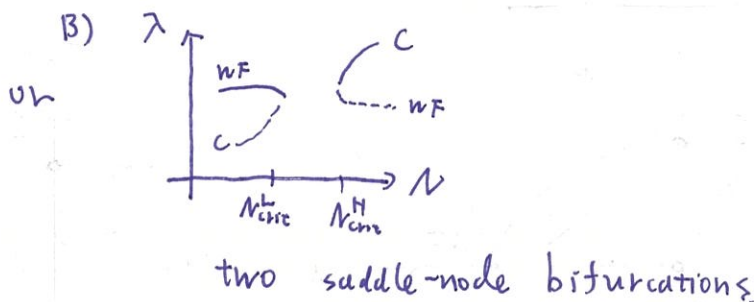 B) λ
or
WF
C
C
WF
N^L_crit N^H_crit N
two saddle-node bifurcations